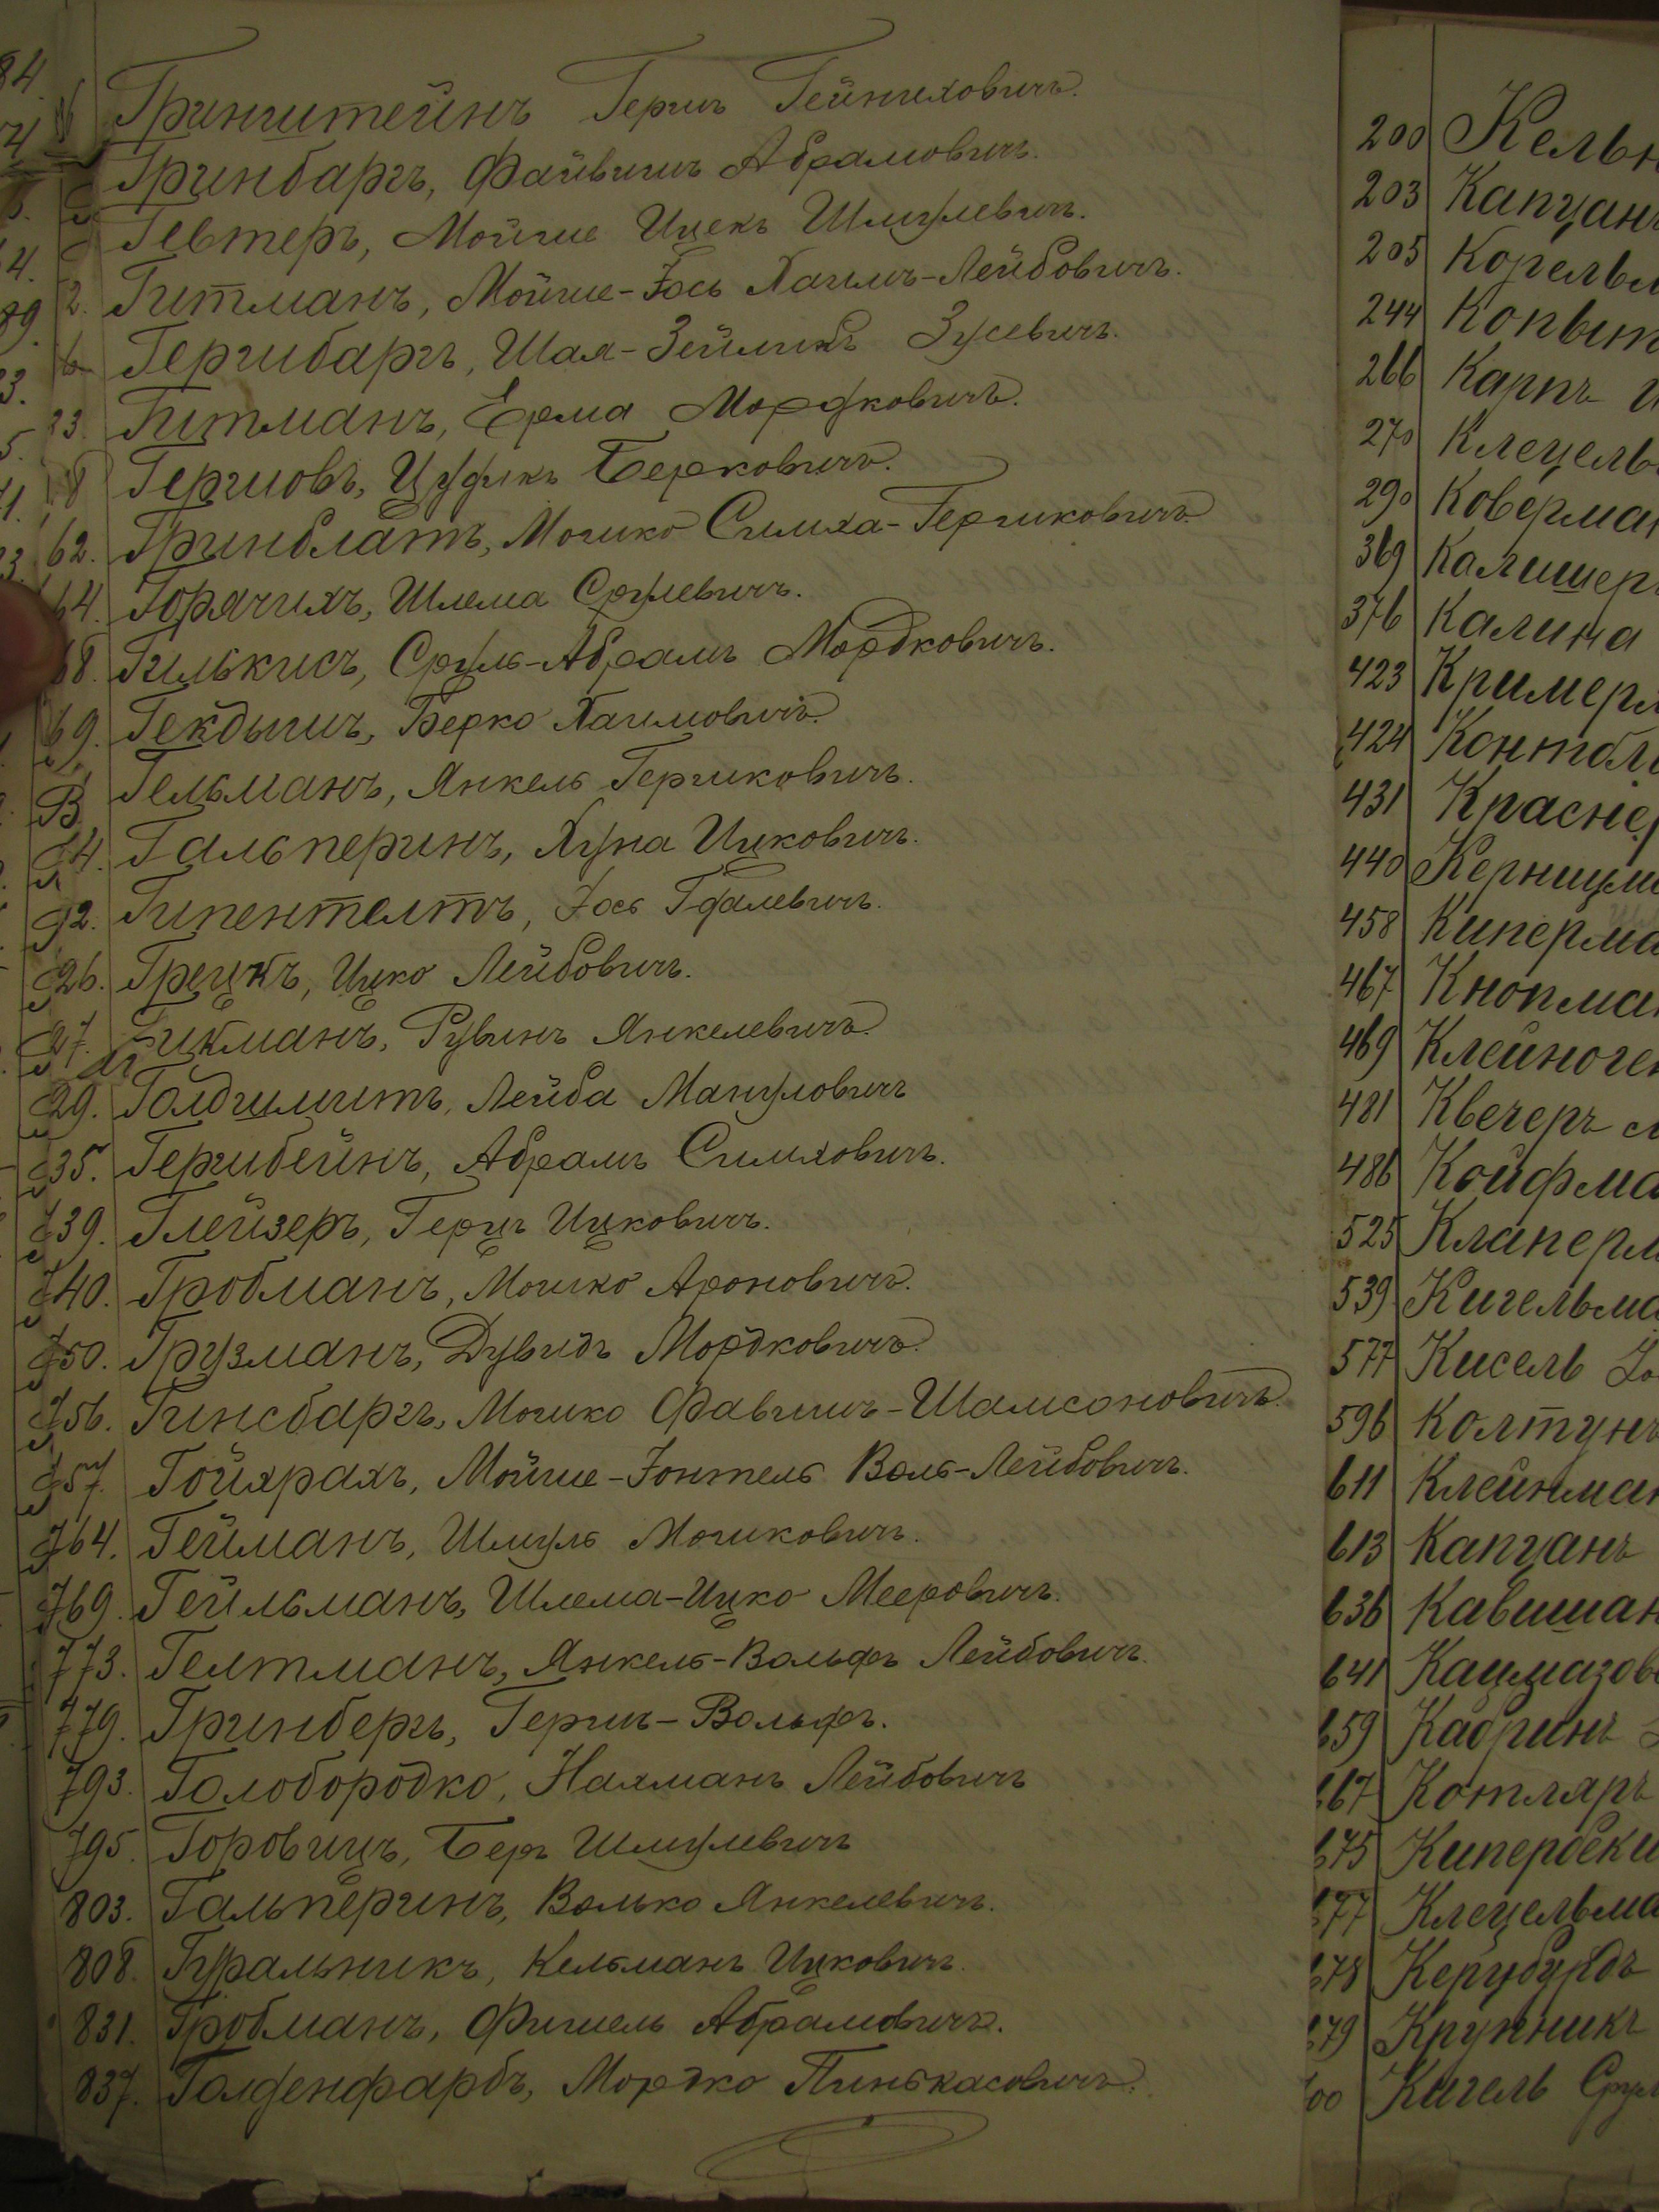 Гринштейнъ Гершъ Гейниховичъ.
Гринбаргъ, Файвишъ Абрамовичъ.
Гевтеръ, Мойше Ицекъ Шмулевичъ.
2. Гитманъ, Мойше-Іось Хаимъ-Лейбовичъ.
Гершбаргъ, Шая-Зейликъ Зусевичъ.
23. Гитманъ, Ерма Мордковичъ.
8 Гершовъ, Цудикъ Берковичъ.
62. Гринблатъ, Мошко Симха-Гершковичъ.
64. Горячихъ, Шлема Срулевичъ.
68. Гилькисъ, Сруль-Абрамъ Мордковичъ.
69. Гекдышъ, Берко Хаимовичъ.
Гельманъ, Янкель Гершковичъ.
14. Гальперинъ, Хуна Ицковичъ.
92. Гипентелтъ, Іось Гдалевичъ.
26. Грецкъ, Ицко Лейбовичъ.
27. Гикманъ, Рувинъ Янкелевичъ.
29. Голдшмитъ, Лейба Мануловичъ
735. Гершбейнъ, Абрамъ Симховичъ.
739. Глейзеръ, Герцъ Ицковичъ.
740. Гробманъ, Мошко Ароновичъ.
750. Грузманъ, Дувидъ Мордковичъ.
756. Гинсбаргъ, Мошко Фавишъ-Шамсоновичъ.
757. Гойхрахъ, Мойше-Іонтель Воль-Лейбовичъ.
764. Гейманъ, Шмуль Мошковичъ.
769. Гейльманъ, Шлема-Ицко Мееровичъ.
773. Гелтманъ, Янкель-Вольфъ Лейбовичъ.
779. Гринбергъ, Гершъ-Вольфъ.
793. Голобородко, Нахманъ Лейбовичъ
795. Горовицъ, Беръ Шмулевичъ
803. Гальперинъ, Волько Янкелевичъ.
808. Гуральникъ, Кельманъ Ицковичъ.
831. Гробманъ, Фишель Абрамовичъ.
837. Голденфарбъ, Мордко Пинькасовичъ.
200 Кельн
203 Капцанъ
205 Корельм
244 Копыт
266 Карпъ И
270 Клецель
290 Коверман
369 Калишеръ
376 Калина
423 Кримерм
424 Контбл
431 Краснер
440 Керницм
458 Киперма
467 Кнопма
469 Клейноге
481 Квечеръ М
486 Койфма
525 Клаперм
539 Кигельма
577 Кисель Іо
596 Колтунъ
611 Клейнман
613 Капцанъ
636 Кавишан
641 Кацмазов
659 Кабринъ
667 Котляръ
675 Кипербеки
677 Клецельма
678 Керцбурдъ
679 Крупникъ
700 Кигель Срул